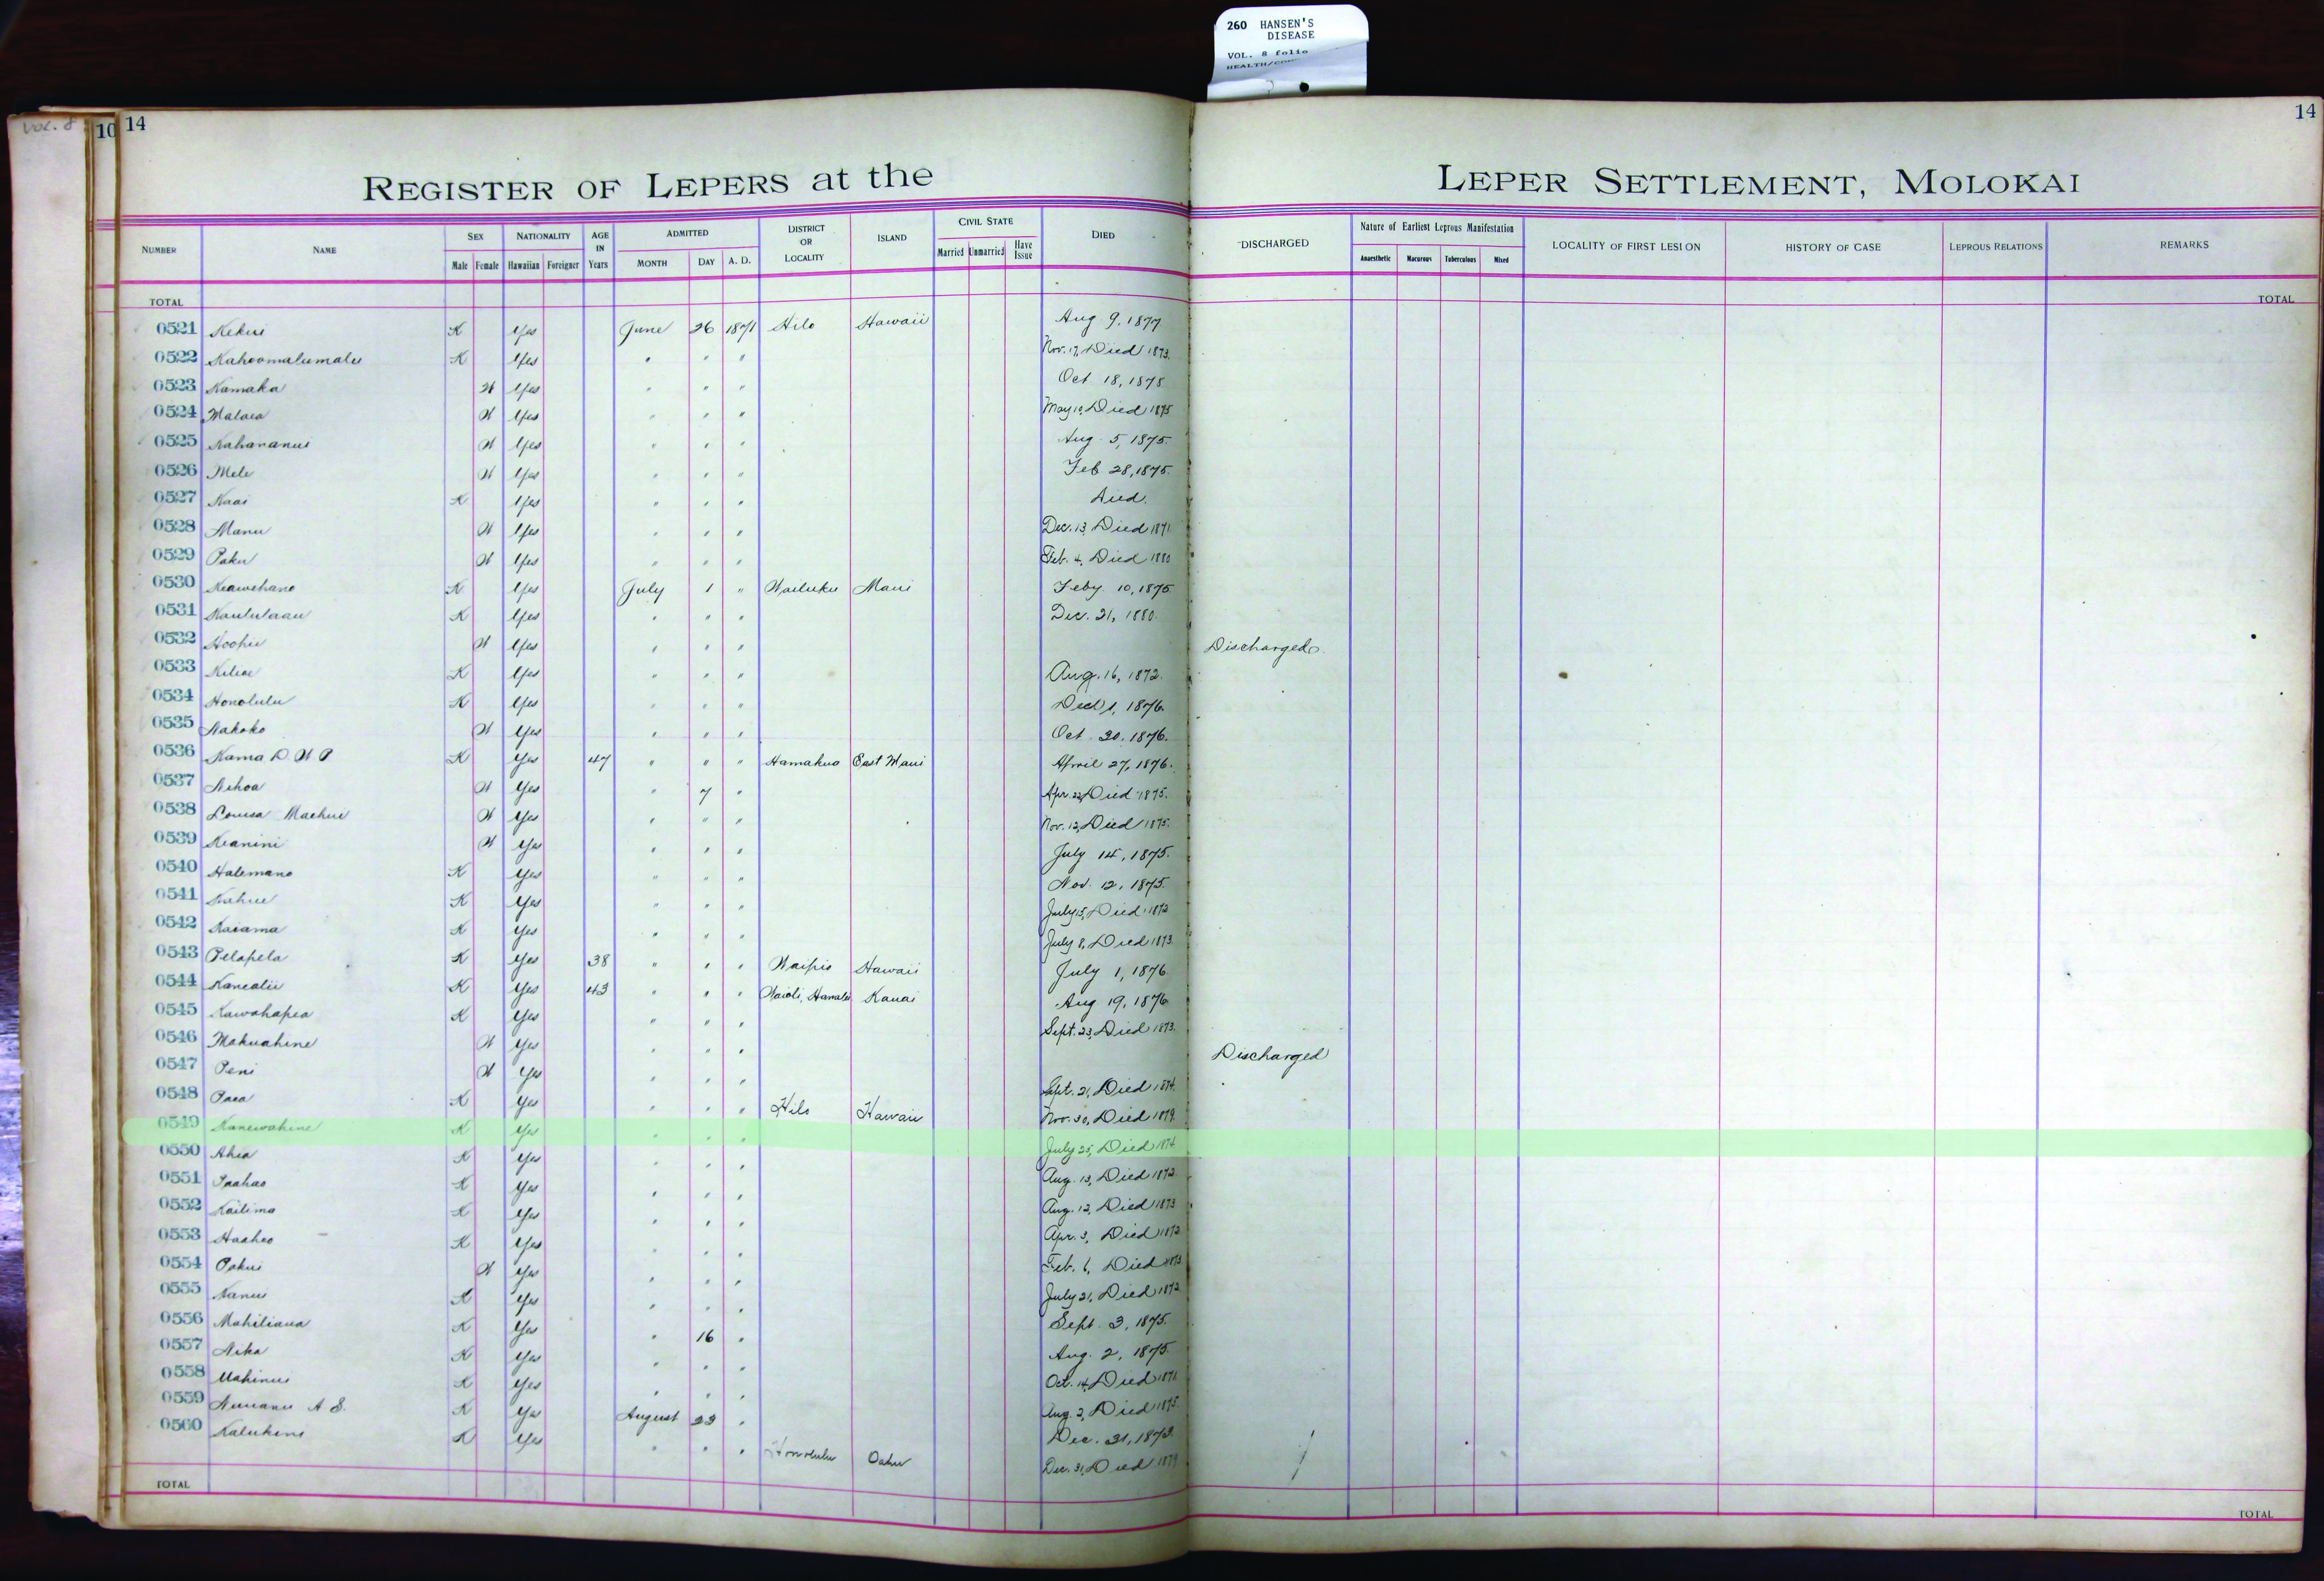 260 HANSEN'S
DISEASE
VOL. 8 folio
VOL. 8
10 14
14
REGISTER OF LEPERS at the
LEPER SETTLEMENT, MOLOKAI
NUMBER NAME SEX Male Female NATIONALITY Hawaiian Foreigner AGE IN Years ADMITTED MONTH DAY A. D. DISTRICT OR LOCALITY ISLAND CIVIL STATE Married Unmarried Have Issue DIED
DISCHARGED Nature of Earliest Leprous Manifestation Anaesthetic Macurous Tuberculous Mixed LOCALITY OF FIRST LESION HISTORY OF CASE LEPROUS RELATIONS REMARKS
TOTAL TOTAL
0521 Kekui K Yes June 26 1871 Hilo Hawaii Aug 9, 1877
0522 Kahoomalumalu K Yes " " " Nov. 17, Died 1873.
0523 Kamaka W Yes " " " Oct 18, 1875
0524 Malaea W Yes " " " May 10, Died 1875
0525 Nahananui W Yes " " " Aug. 5, 1875.
0526 Mele W Yes " " " Feb 28, 1875.
0527 Kaai K Yes " " " Died.
0528 Manu W Yes " " " Dec. 13, Died 1871
0529 Paku W Yes " " " Feb. 4, Died 1880
0530 Keawehano K Yes July 1 " Wailuku Maui Feby 10, 1875
0531 Kaululaau K Yes " " " Dec. 21, 1880.
0532 Hoohii W Yes " " " Discharged.
0533 Kiliae K Yes " " " Aug. 16, 1872.
0534 Honolulu K Yes " " " 1, 1876.
0535 Nakoko W Yes " " " Oct. 20, 1876.
0536 Kama D. W P K Yes 47 " " " Hamakua East Maui April 27, 1876.
0537 Nihoa W Yes " 7 " Apr. 22, Died 1875.
0538 Louisa Maehui W Yes " " " Nov. 12, Died 1875.
0539 Keanini W Yes " " " July 14, 1875.
0540 Halemano K Yes " " " Nov. 12, 1875.
0541 Kahue K Yes " " " July 15, Died 1872
0542 Kaiama K Yes " " " July 8, Died 1873.
0543 Pelapela K Yes 38 " " " Waipio Hawaii July 1, 1876
0544 Kanealii K Yes 43 " " " Waioli, Hanalei Kauai Aug 19, 1876
0545 Kawahapea K Yes " " " Sept. 23, Died 1873.
0546 Makuahine W Yes " " " Discharged
0547 Peni W Yes " " " Sept. 21, Died 1874.
0548 Paea K Yes " " " Hilo Hawaii Nov. 30, Died 1879.
0549 Kanewahine K Yes " " " July 25, Died 1874
0550 Ahia K Yes " " " Aug. 13, Died 1872.
0551 Paahao K Yes " " " Aug. 12, Died 1873
0552 Kailima K Yes " " " Apr. 3, Died 1872
0553 Haaheo K Yes " " " Feb. 6, Died 1873
0554 Pakui W Yes " " " July 21, Died 1872
0555 Nanui K Yes " " " Sept. 3, 1875.
0556 Mahiliaua K Yes " 16 " Aug. 2, 1875.
0557 Nika K Yes " " " Oct. 14, Died 1871.
0558 Mahinui K Yes " " " Aug. 2, Died 1875.
0559 Nuuanu A S. K Yes August 23 " Dec. 31, 1873.
0560 Kalukini K Yes " " " Honolulu Oahu Dec. 31, Died 1879
TOTAL TOTAL